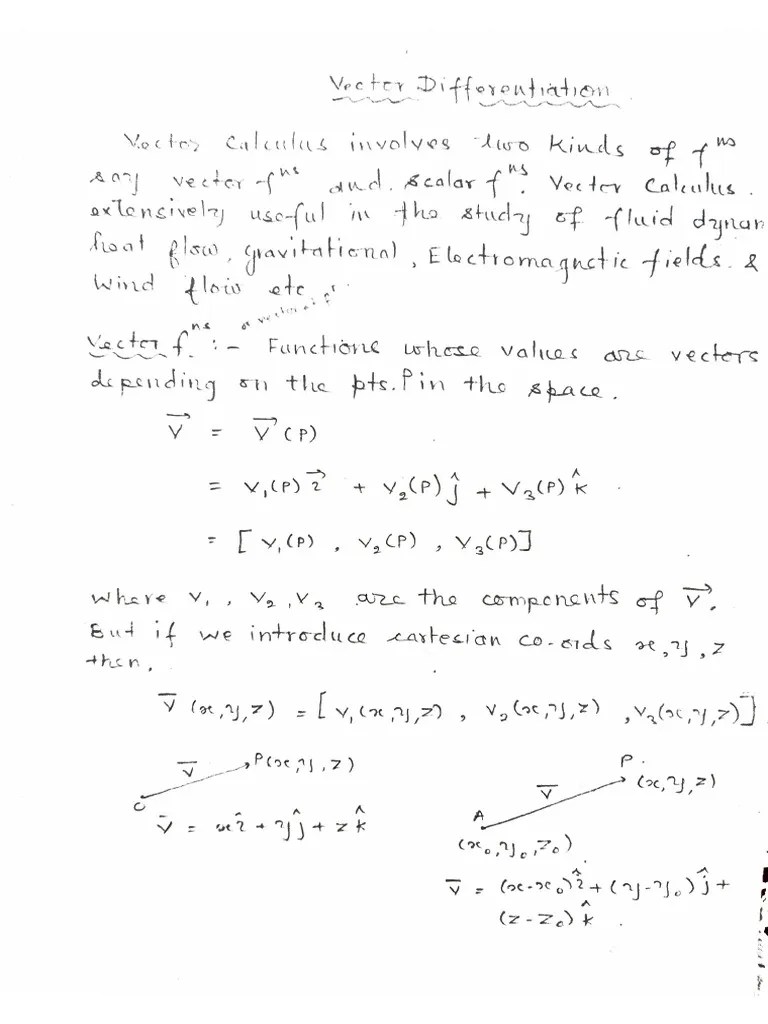 Vector Differentiation.
Vector Calculus involves two kinds of f^ns
say vector f^ns and scalar f^ns. Vector Calculus.
extensively useful in the study of fluid dynam
heat flow, gravitational, Electromagnetic fields. &
Wind flow etc.
Vector f^ns. :- Functions whose values are vectors
depending on the pts. P in the space.
V⃗ = V⃗ (P)
= V₁(P) i⃗ + V₂(P) ĵ + V₃(P) k̂ .
= [ V₁(P) , V₂(P) , V₃(P)]
where V₁ , V₂ , V₃ are the components of V⃗.
But if we introduce cartesian co-ords x, y, z
then,
V̄ (x, y, z) = [ V₁(x, y, z) , V₂(x, y, z) , V₃(x, y, z)]
V̄ P(x, y, z)
O
V̄ = xî + yĵ + z k̂
P.
V̄ (x, y, z)
A
(x₀, y₀, z₀)
V̄ = (x-x₀) î + (y-y₀) ĵ +
(z-z₀) k̂ .